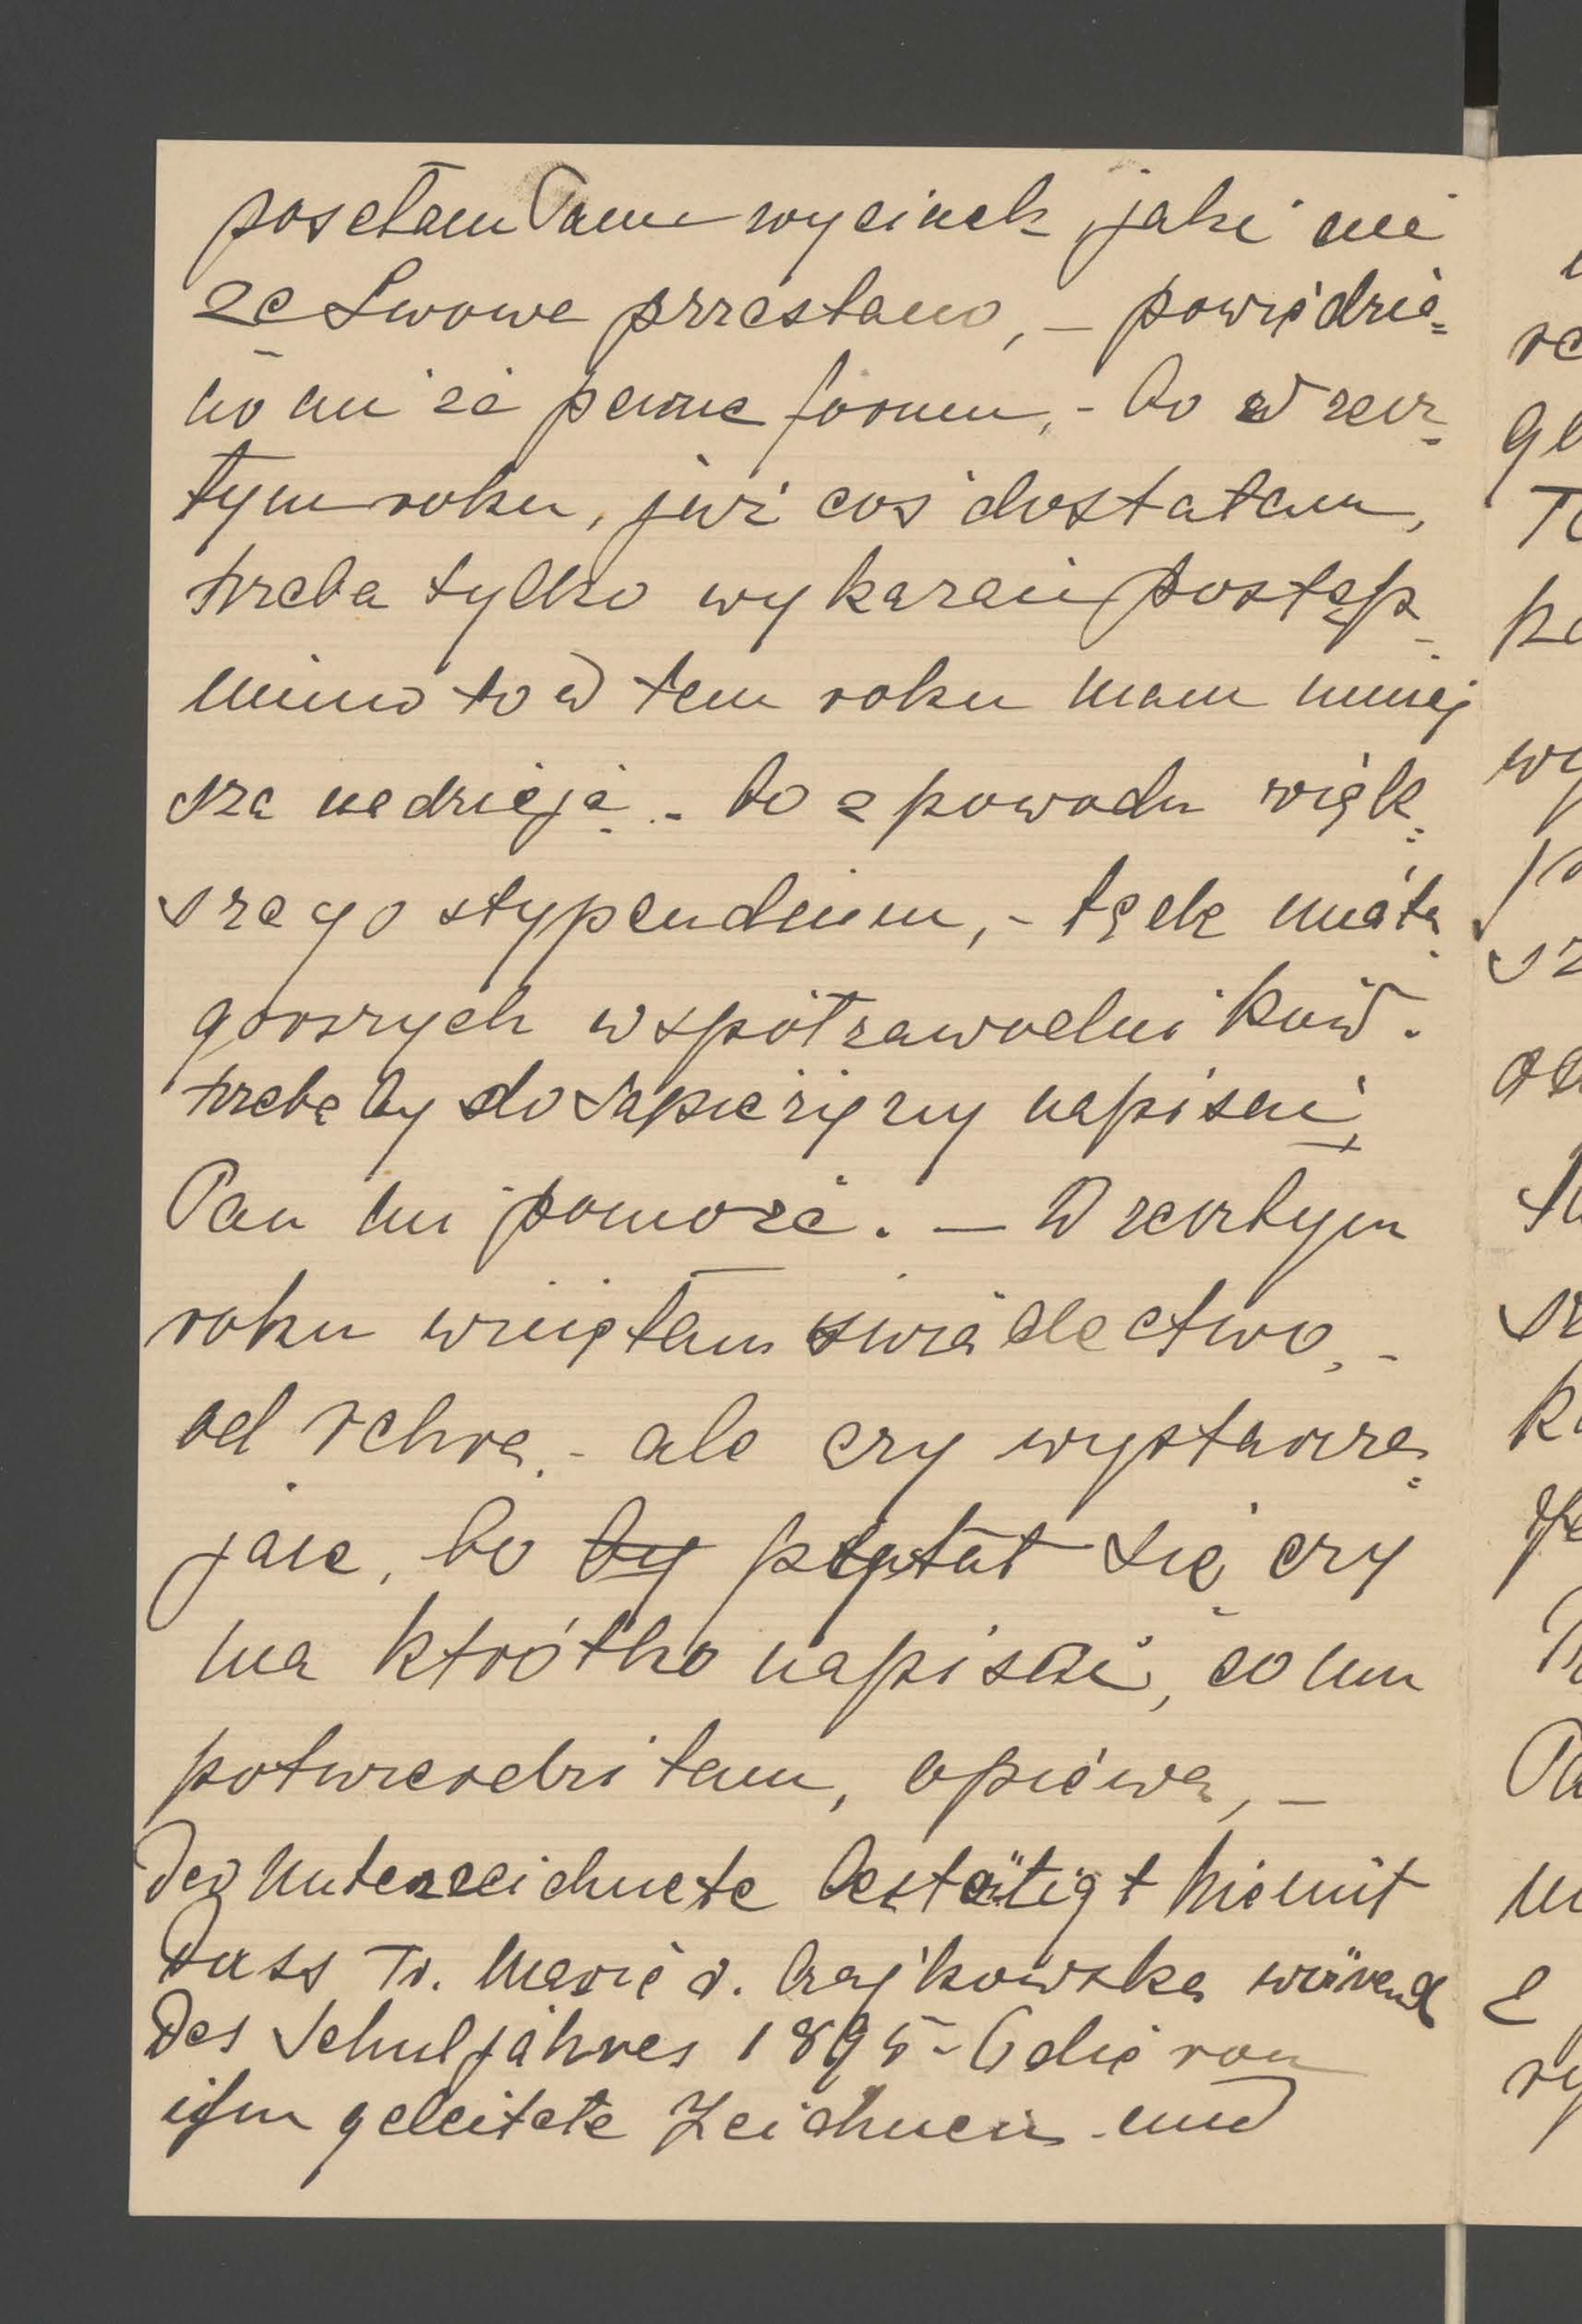 posełam Panu wycinek jaki mi
ze Lwowa przesłano, – powiedzia=
no mi że pewne forum, – bo w zesz=
tym roku, już coś dostałam,
trzeba tylko wykazać postęp –
mimo to w tem roku mam mniej
szą nadzieję – bo z powodu więk=
szego stypendium, –
gorszych współzawodników.
trzeba by do Sapieżyny napisać,
Pan mi pomoże. – W zeszłym
roku wzięłam świadectwo, –
od Fehra, – ale czy wystarcza=
jace, bo by pytał się czy
ma krótko napisać, co mu
potwierdziłam, opiewa, –
Der Unterzeichnete bestätigt hiemit
dass Fr. Marie v. Czajkowska wärend
des Schuljahres 1895–6 die von
ihm geleitete Zeichnen und